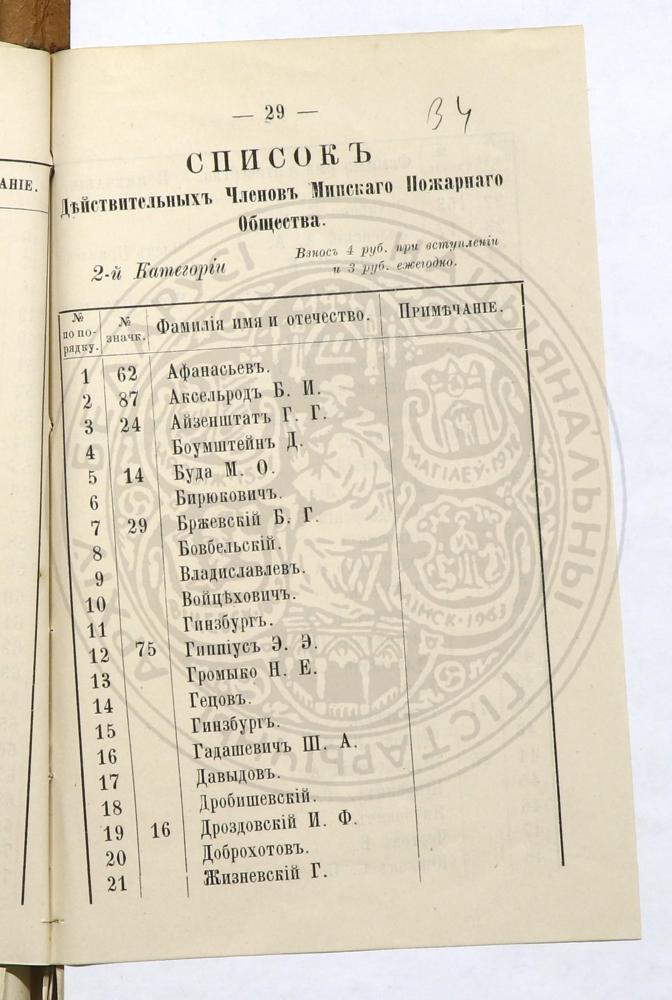 АНІЕ.
— 29 —
34
СПИСОКЪ
Дѣйствительныхъ Членовъ Минскаго Пожарнаго
Общества.
2-й Категоріи
Взносъ 4 руб. при вступленіи
и 3 руб. ежегодно.
№ по порядку. № значк. Фамилія имя и отечество. Примѣчаніе.
1 62 Афанасьевъ.
2 87 Аксельродъ Б. И.
3 24 Айзенштатъ Г. Г.
4 Боумштейнъ Д.
5 14 Буда М. О.
6 Бирюковичъ.
7 29 Бржевскій Б. Г.
8 Бовбельскій.
9 Владиславлевъ.
10 Войцѣховичъ.
11 Гинзбургъ.
12 75 Гиппіусъ Э. Э.
13 Громыко Н. Е.
14 Гецовъ.
15 Гинзбургъ.
16 Гадашевичъ Ш. А.
17 Давыдовъ.
18 Дробишевскій.
19 16 Дроздовскій И. Ф.
20 Доброхотовъ.
21 Жизневскій Г.
МАГІЛЕЎ
МІНСК·1963